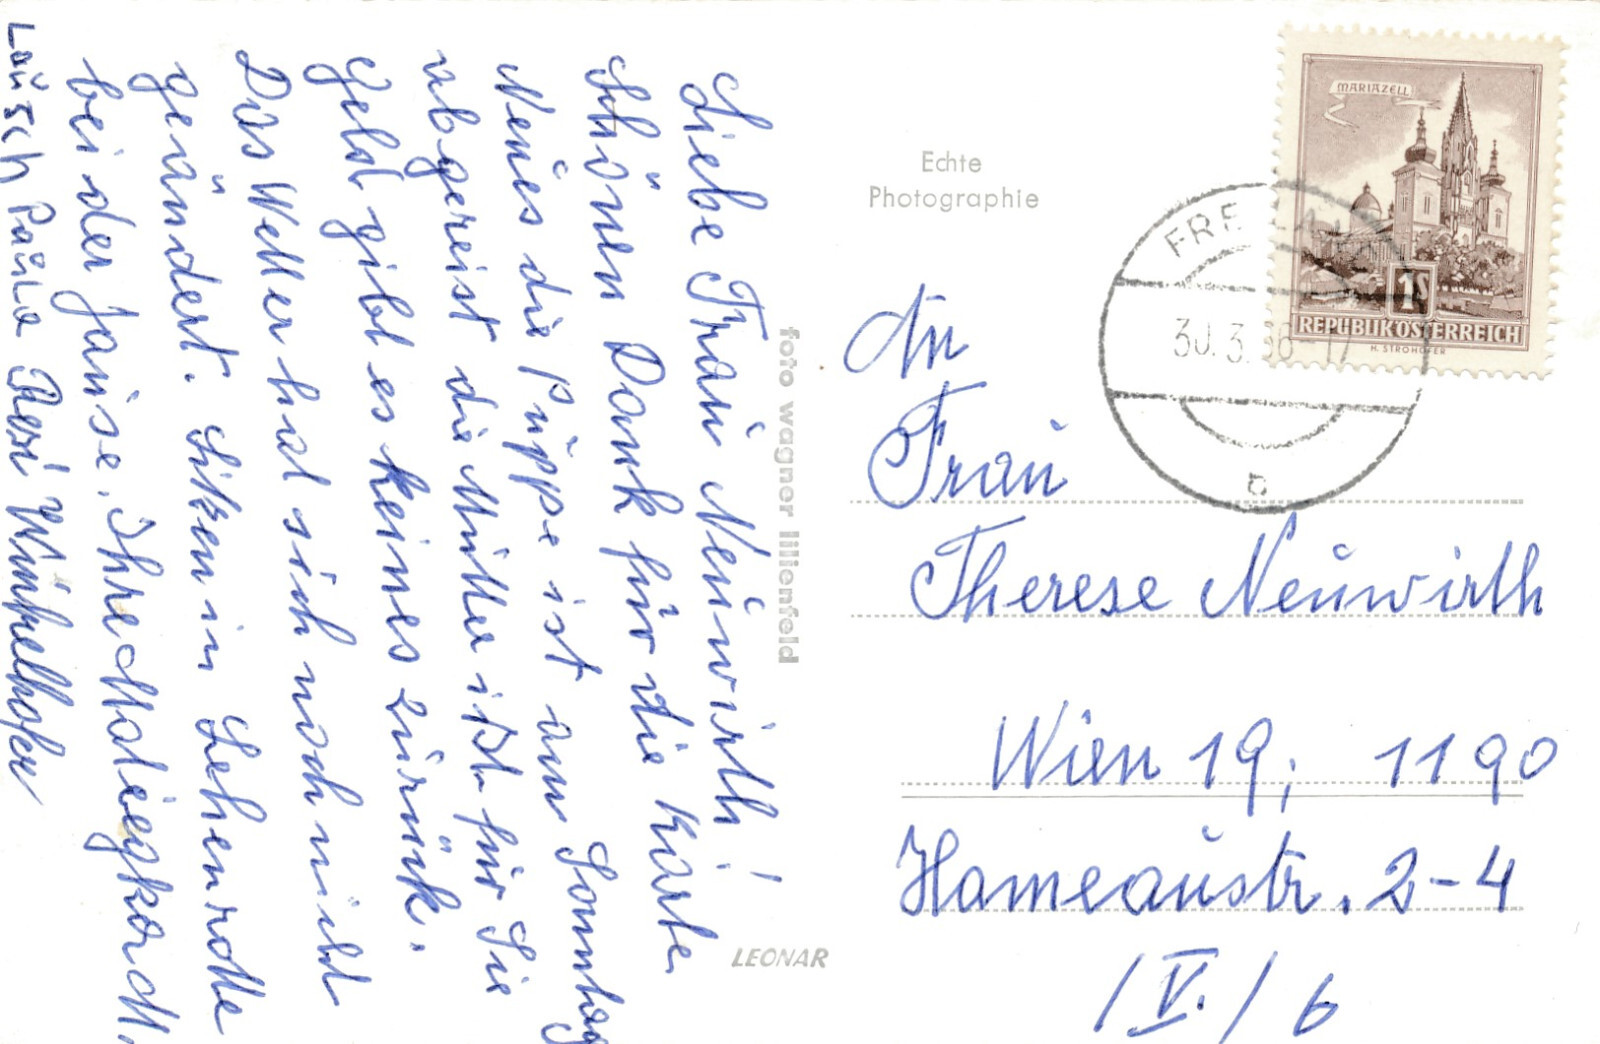 Liebe Frau Neuwirth!
Schönen Dank für die Karte
Neues die Puppe ist am Sonntag
abgereist die Mutta ist für Sie
Geld gibt es keines zurück.
Das Wetter hat sich noch nicht
geändert. Sitzen in Lehenrotte
bei der Jause. Ihre
Lausch Paula Resi Winkelhofer
Echte
Photographie
foto wagner lilienfeld
LEONAR
MARIAZELL
1S
REPUBLIK ÖSTERREICH
H. STROHOFER
30.3. 66-17
b
An
Frau
Therese Neuwirth
Wien 19, 1190
Hameaustr. 2-4
/ V. / 6